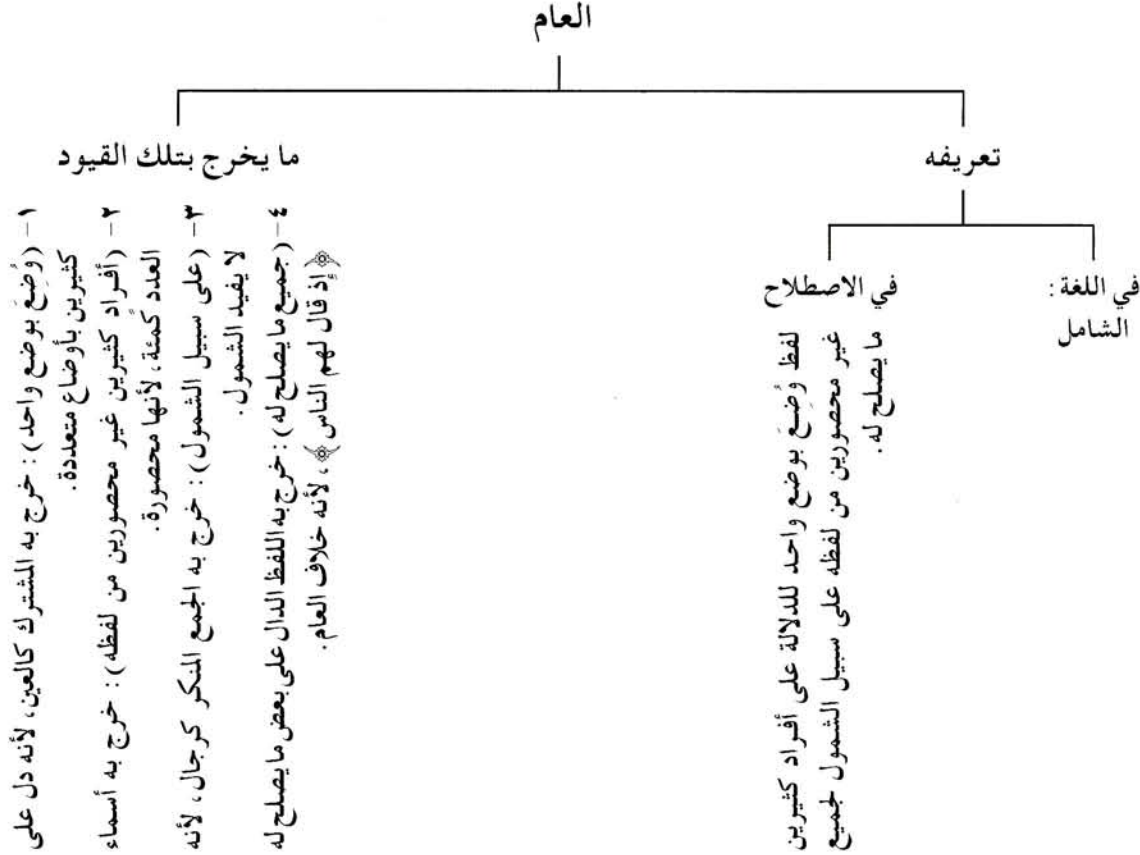 العام
تعريفه
في اللغة :
الشامل
في الاصطلاح
لفظ وُضِعَ بوضع واحد للدلالة على أفراد كثيرين
غير محصورين من لفظه على سبيل الشمول لجميع
ما يصلح له .
ما يخرج بتلك القيود
١ – (وُضِعَ بوضع واحد) : خرج به المشترك كالعين، لأنه دل على
كثيرين بأوضاع متعددة .
٢ – (أفراد كثيرين غير محصورين من لفظه) : خرج به أسماء
العدد كمئة، لأنها محصورة .
٣ – (على سبيل الشمول) : خرج به الجمع المنكر كرجال، لأنه
لا يفيد الشمول .
٤ – (جميع ما يصلح له) : خرج به اللفظ الدال على بعض ما يصلح له
﴿إذ قال لهم الناس﴾، لأنه خلاف العام .